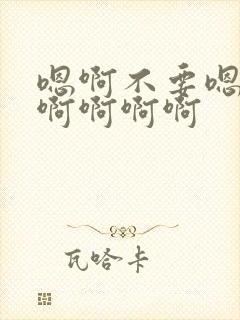 嗯啊不要嗯
啊啊啊啊
瓦哈卡